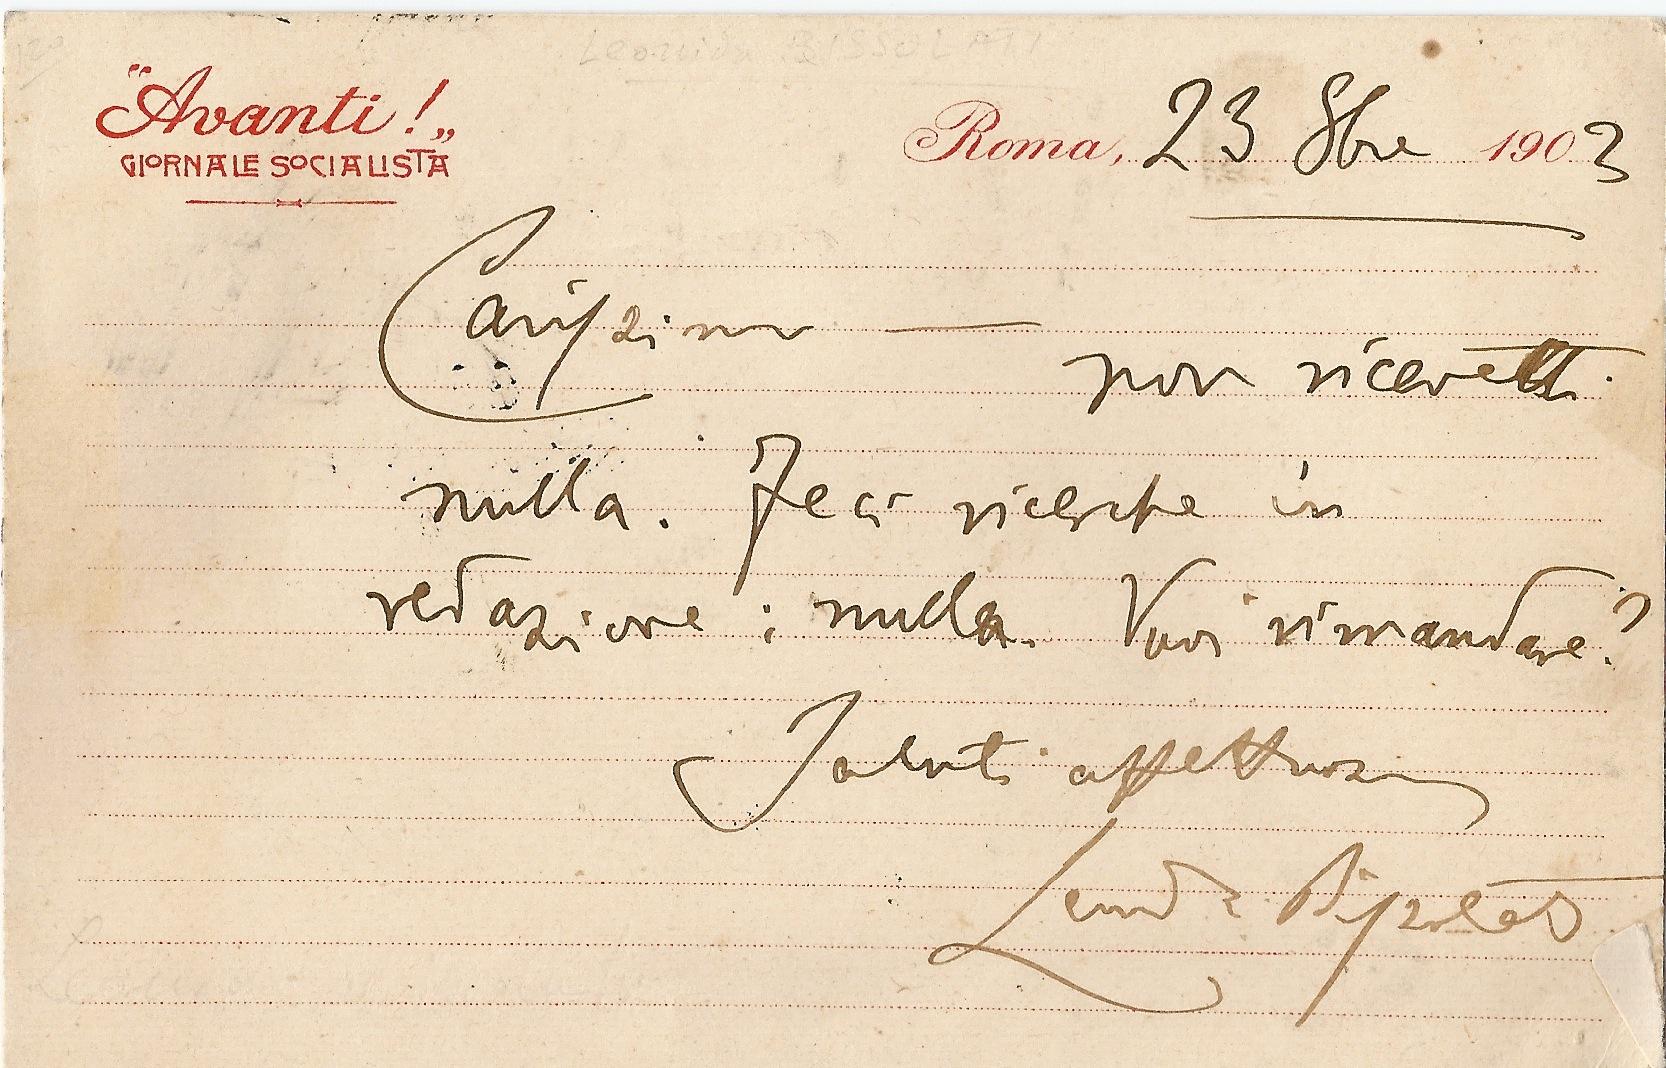 Leonida BISSOLATI
"Avanti!„
GIORNALE SOCIALISTA
Roma, 23 8bre 1903
Carissimo —
non ricevetti
nulla. Feci ricerche in
redazione: nulla. Vuoi rimandare?
Saluti affettuosi
Leonida Bissolati